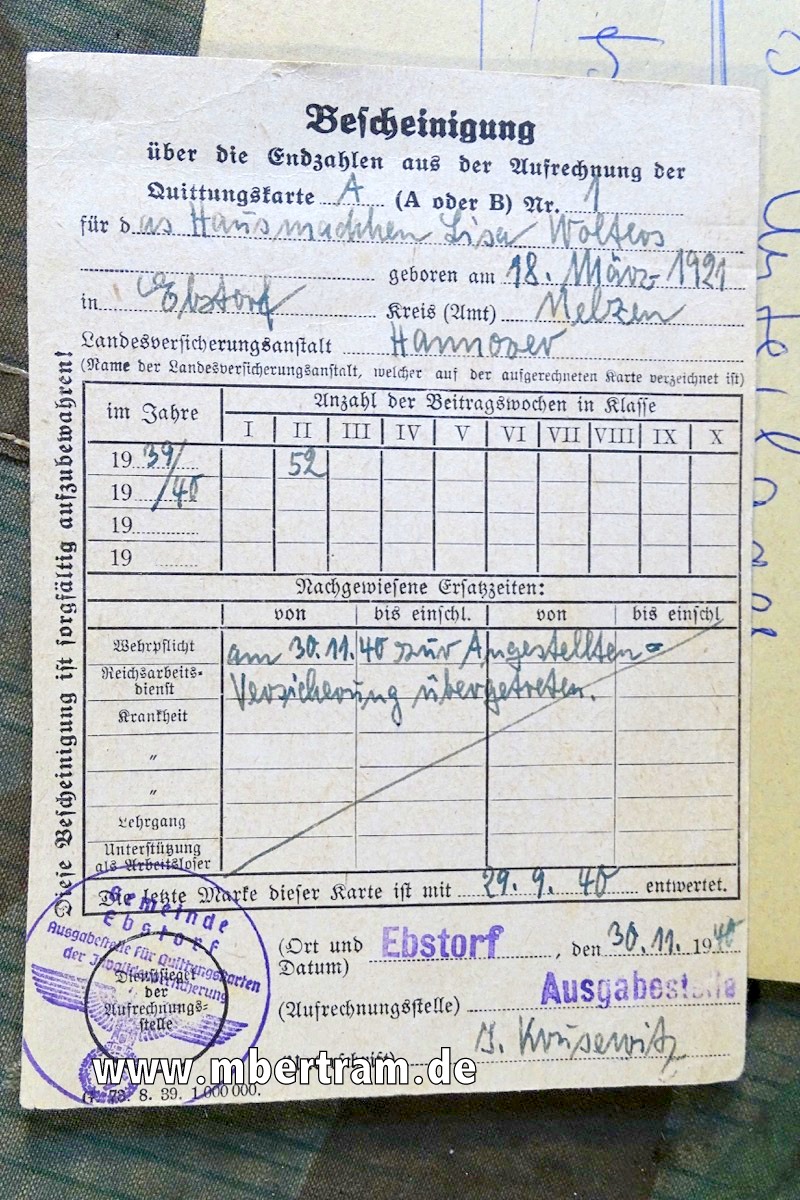 Bescheinigung
über die Endzahlen aus der Aufrechnung der
Quittungskarte A (A oder B) Nr. 1
für das Hausmädchen Lisa Wolters
geboren am 18. März 1921
in Ebstorf Kreis (Amt) Uelzen
Landesversicherungsanstalt Hannover
(Name der Landesversicherungsanstalt, welcher auf der aufgerechneten Karte verzeichnet ist)
im Jahre Anzahl der Beitragswochen in Klasse
I II III IV V VI VII VIII IX X
19 39/ 52
19 /40
19
19
Nachgewiesene Ersatzzeiten:
von bis einschl. von bis einschl
Wehrpflicht am 30.11.40 zur Angestellten=
Reichsarbeits-
dienst Versicherung übergetreten.
Krankheit
"
"
Lehrgang
Unterstützung
als Arbeitsloser
Die letzte Marke dieser Karte ist mit 29. 9. 40 entwertet.
Diese Bescheinigung ist sorgfältig aufzubewahren!
(Ort und Datum) Ebstorf, den 30.11. 1940
(Aufrechnungsstelle) Ausgabestelle
J. Krusewitz
Gemeinde
Ebstorf
Ausgabestelle für Quittungskarten
der Invalidenversicherung
Dienstsiegel
der
Aufrechnungs-
stelle
www.mbertram.de
8. 39. 1 000 000.